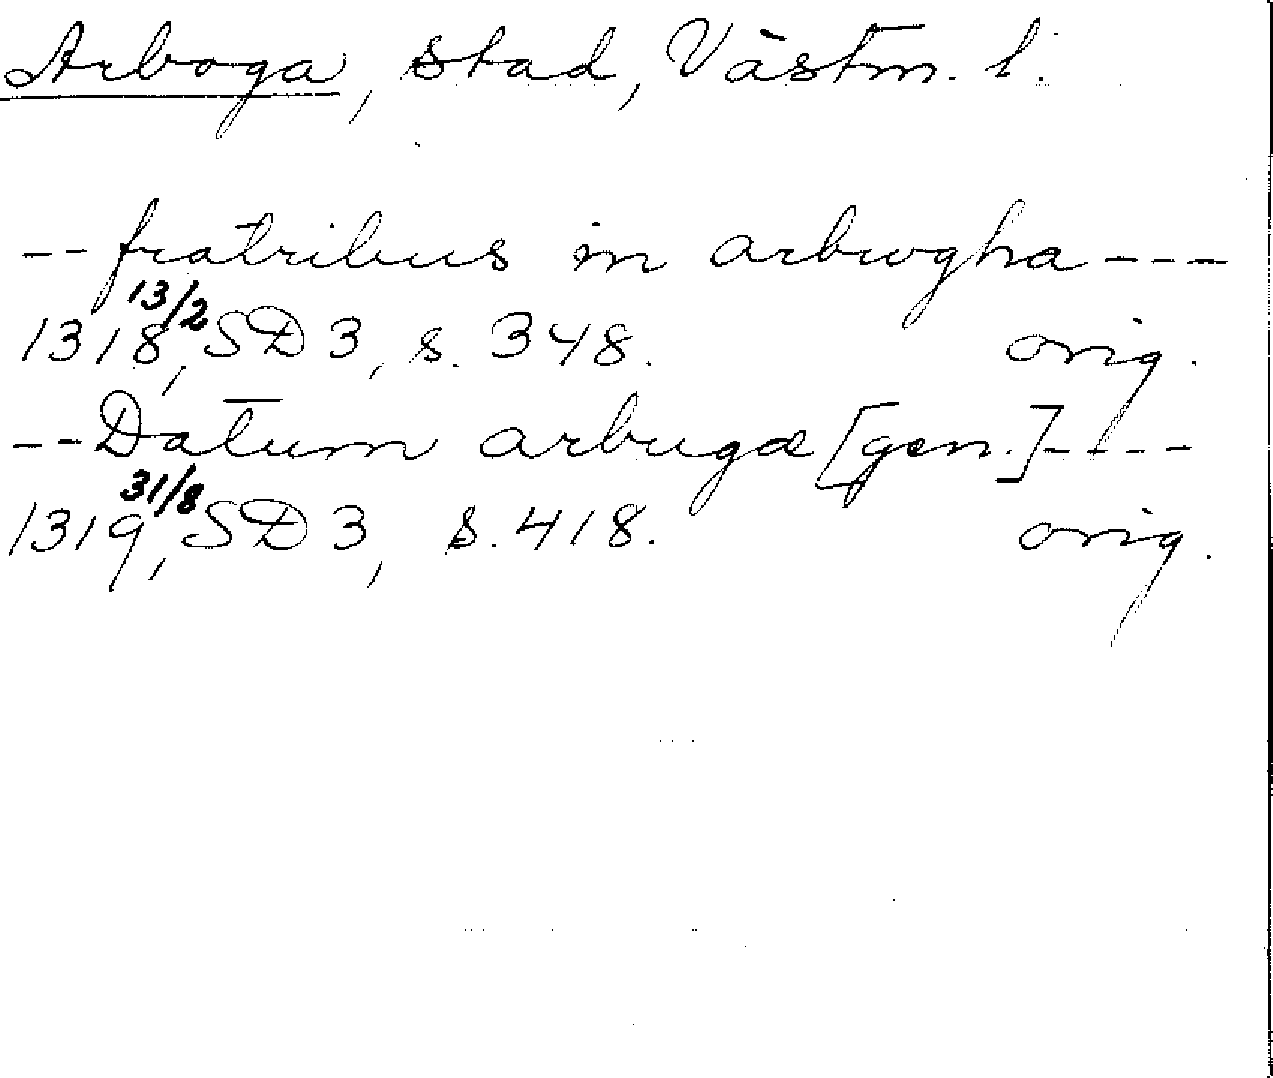 Arboga, stad, Västm. l.
-- fratribus in arbwgha ---
1318 13/2, SD 3, s. 348. orig.
-- Datum arbugæ [gen.] ----
1319 31/8, SD 3, s. 418. orig.